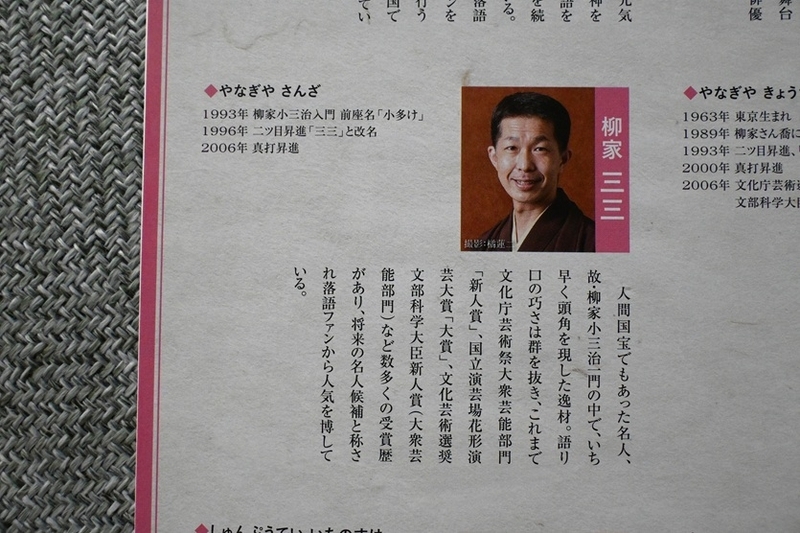 元気
神を
語を
を続
る。
落語
ンを
行う
国で
てい
舞台
俳優
◆やなぎや さんざ
1993年 柳家小三治入門 前座名「小多け」
1996年 二ツ目昇進「三三」と改名
2006年 真打昇進
柳家 三三
撮影:橘蓮二
人間国宝でもあった名人、
故・柳家小三治一門の中で、いち
早く頭角を現した逸材。語り
口の巧さは群を抜き、これまで
文化庁芸術祭大衆芸能部門
「新人賞」、国立演芸場花形演
芸大賞「大賞」、文化芸術選奨
文部科学大臣新人賞(大衆芸
能部門)など数多くの受賞歴
があり、将来の名人候補と称さ
れ落語ファンから人気を博して
いる。
◆やなぎや きょう
1963年 東京生まれ
1989年 柳家さん喬に
1993年 二ツ目昇進、
2000年 真打昇進
2006年 文化庁芸術
文部科学大
◆しゅんぷうてい いちのすけ